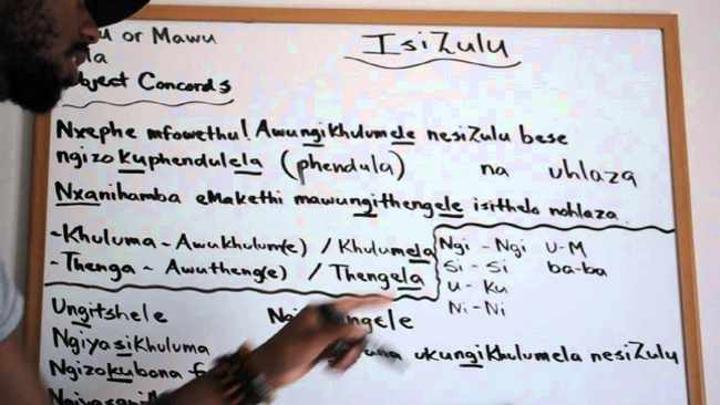 or Mawu
IsiZulu
Object Concords
Nxephe mfowethu! Awungikhulumele nesiZulu bese
ngizokuphendulela (phendula) na uhlaza
Nxanihamba eMakethi mawungithengele isithelo nohlaza.
-Khuluma - Awukhulum(e) / Khulumela
-Thenga - Awutheng(e) / Thengela
Ngi - Ngi U-M
Si - Si ba-ba
U - Ku
Ni - Ni
Ungitshele
Ngiyasikhuluma
Ngizokubona
ukungikhulumela nesiZulu